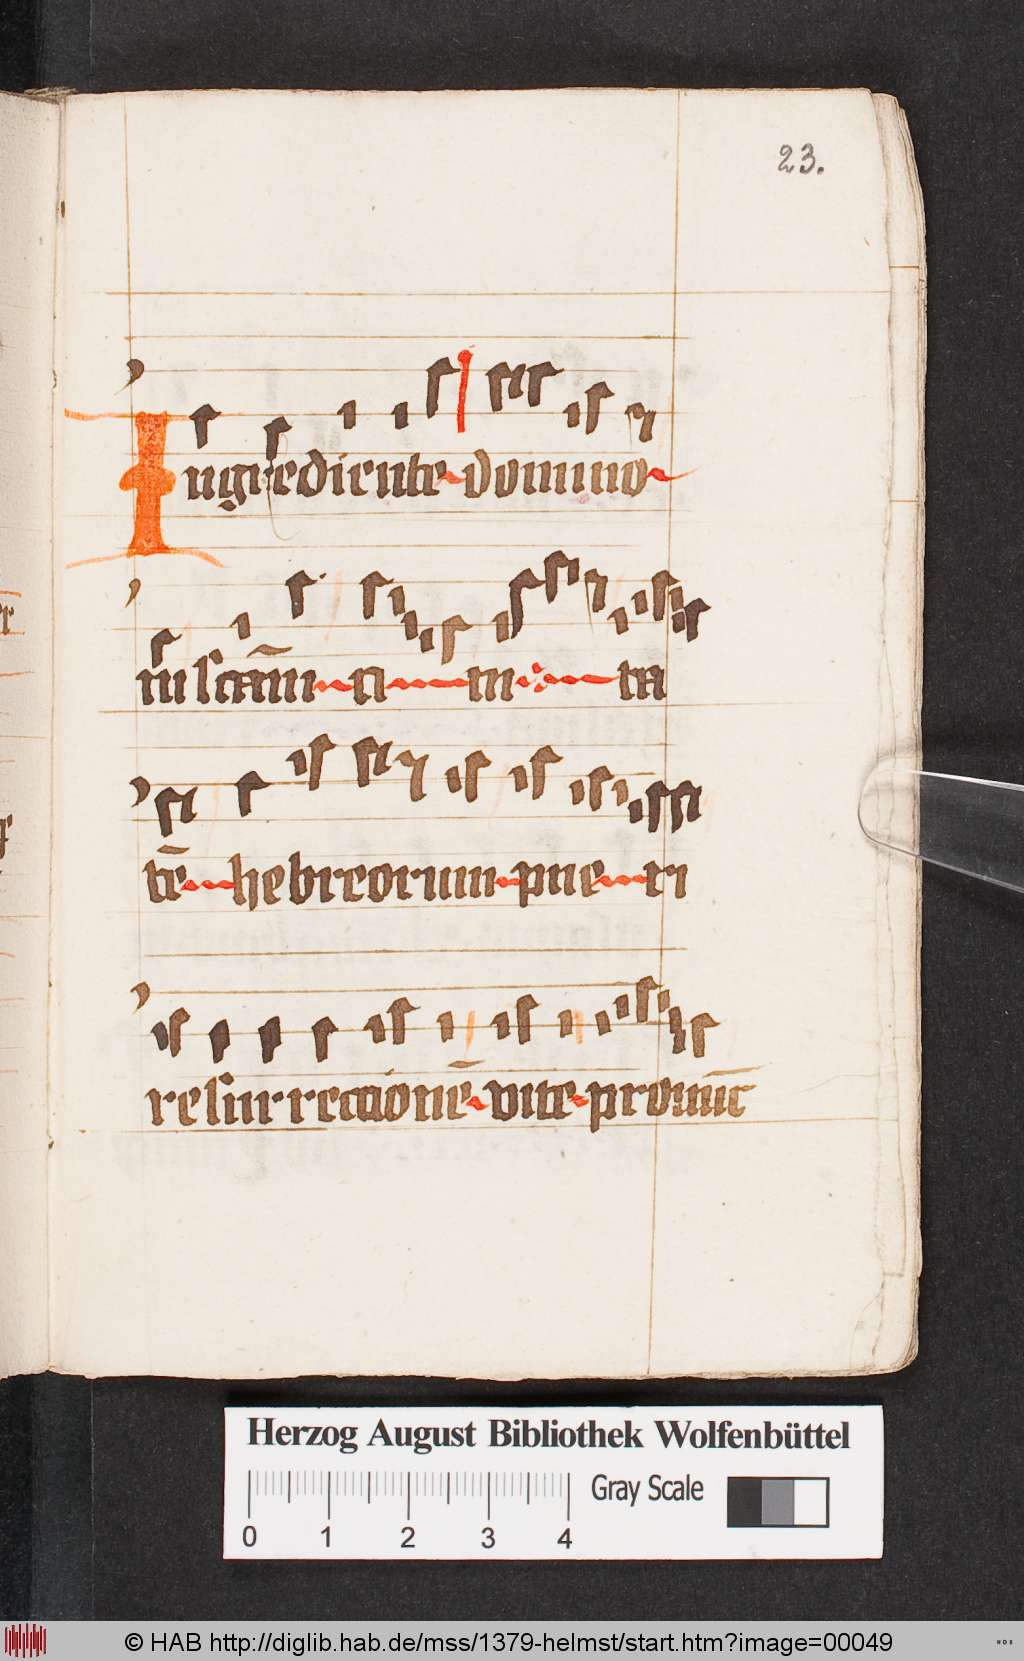 23.
Ingrediente domino
in sctāmm ci m ta
tē hebreorum pue ri
resurrectionē vite pronūc
Herzog August Bibliothek Wolfenbüttel
Gray Scale
0 1 2 3 4
© HAB http://diglib.hab.de/mss/1379-helmst/start.htm?image=00049